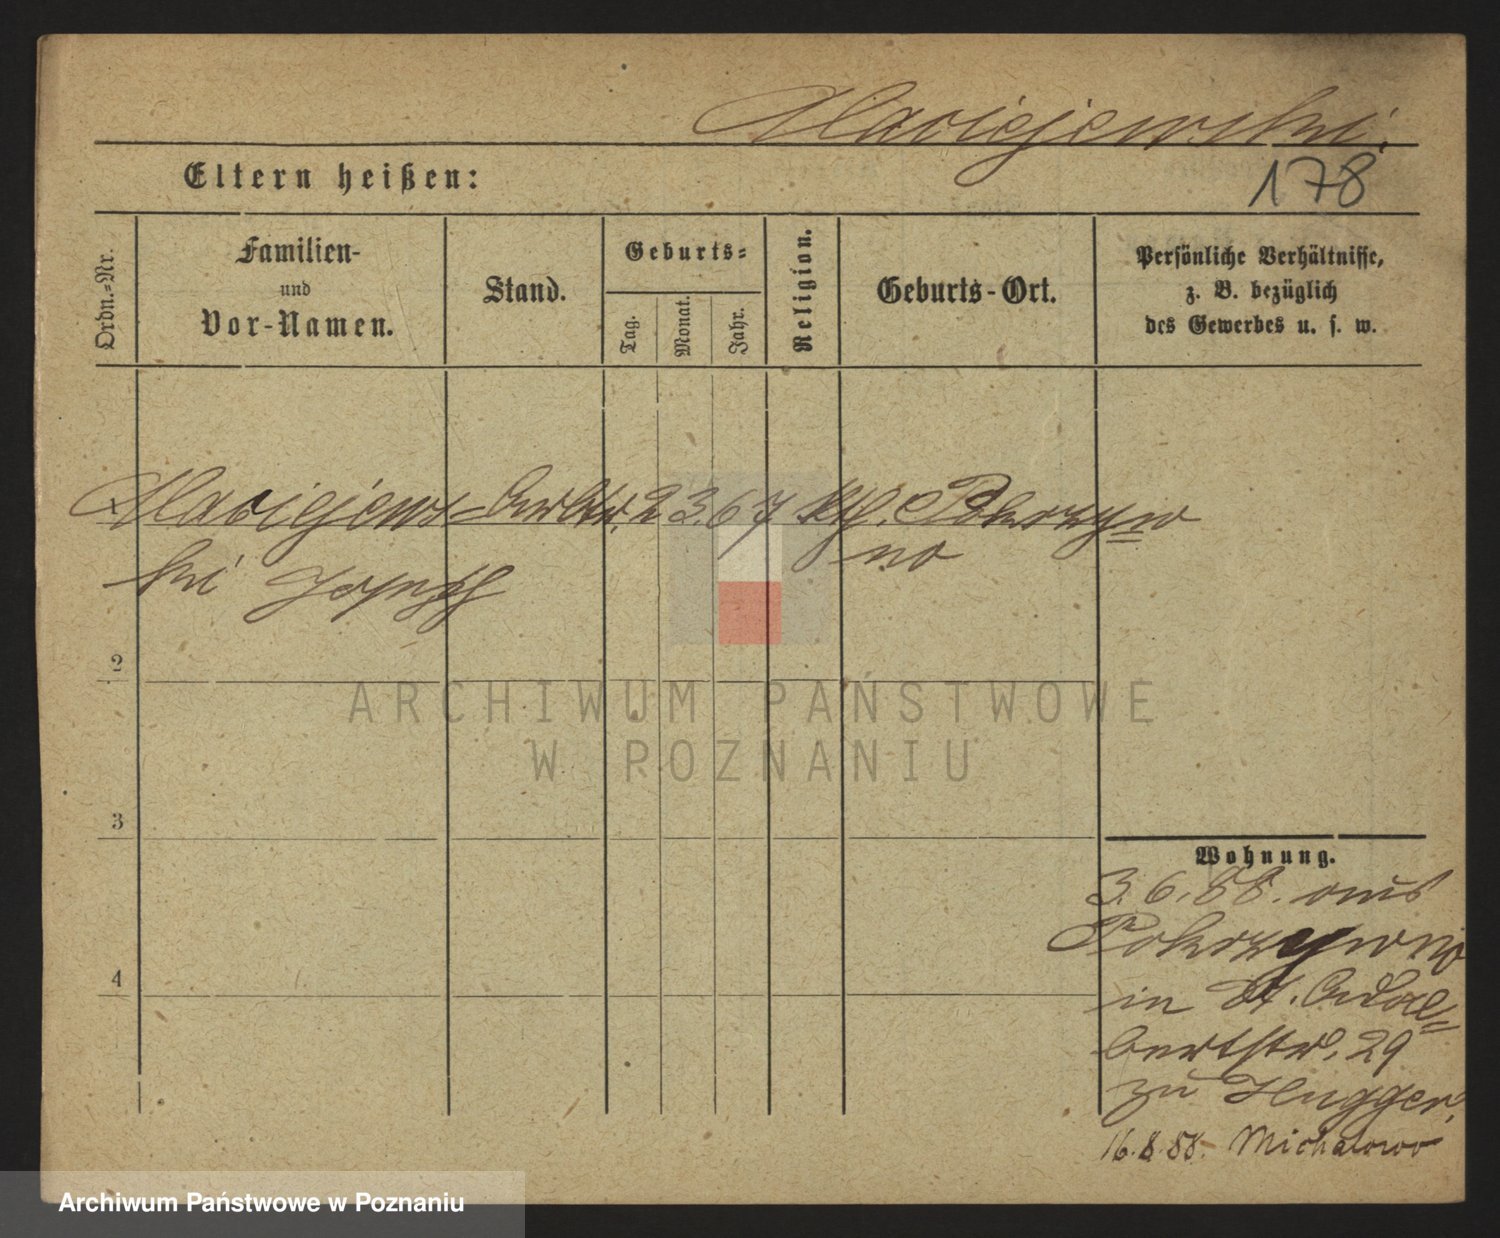 Maciejewski.
178
Eltern heißen:
Ordn.-Nr.
Familien-
und
Vor-Namen.
Stand.
Geburts-
Tag.
Monat.
Jahr.
Religion.
Geburts-Ort.
Persönliche Verhältnisse,
z. B. bezüglich
des Gewerbes u. s. w.
1
Maciejews= Arbtr. 2 3. 67 kth. Pokrzyw
ki Joseph no
2
3
4
Wohnung.
3.6.88. aus
Pokrzywno
in St. Adal=
bertstr. 29
zu Hugger.
16.8.88. Michalowo
ARCHIWUM PAŃSTWOWE
W POZNANIU
Archiwum Państwowe w Poznaniu